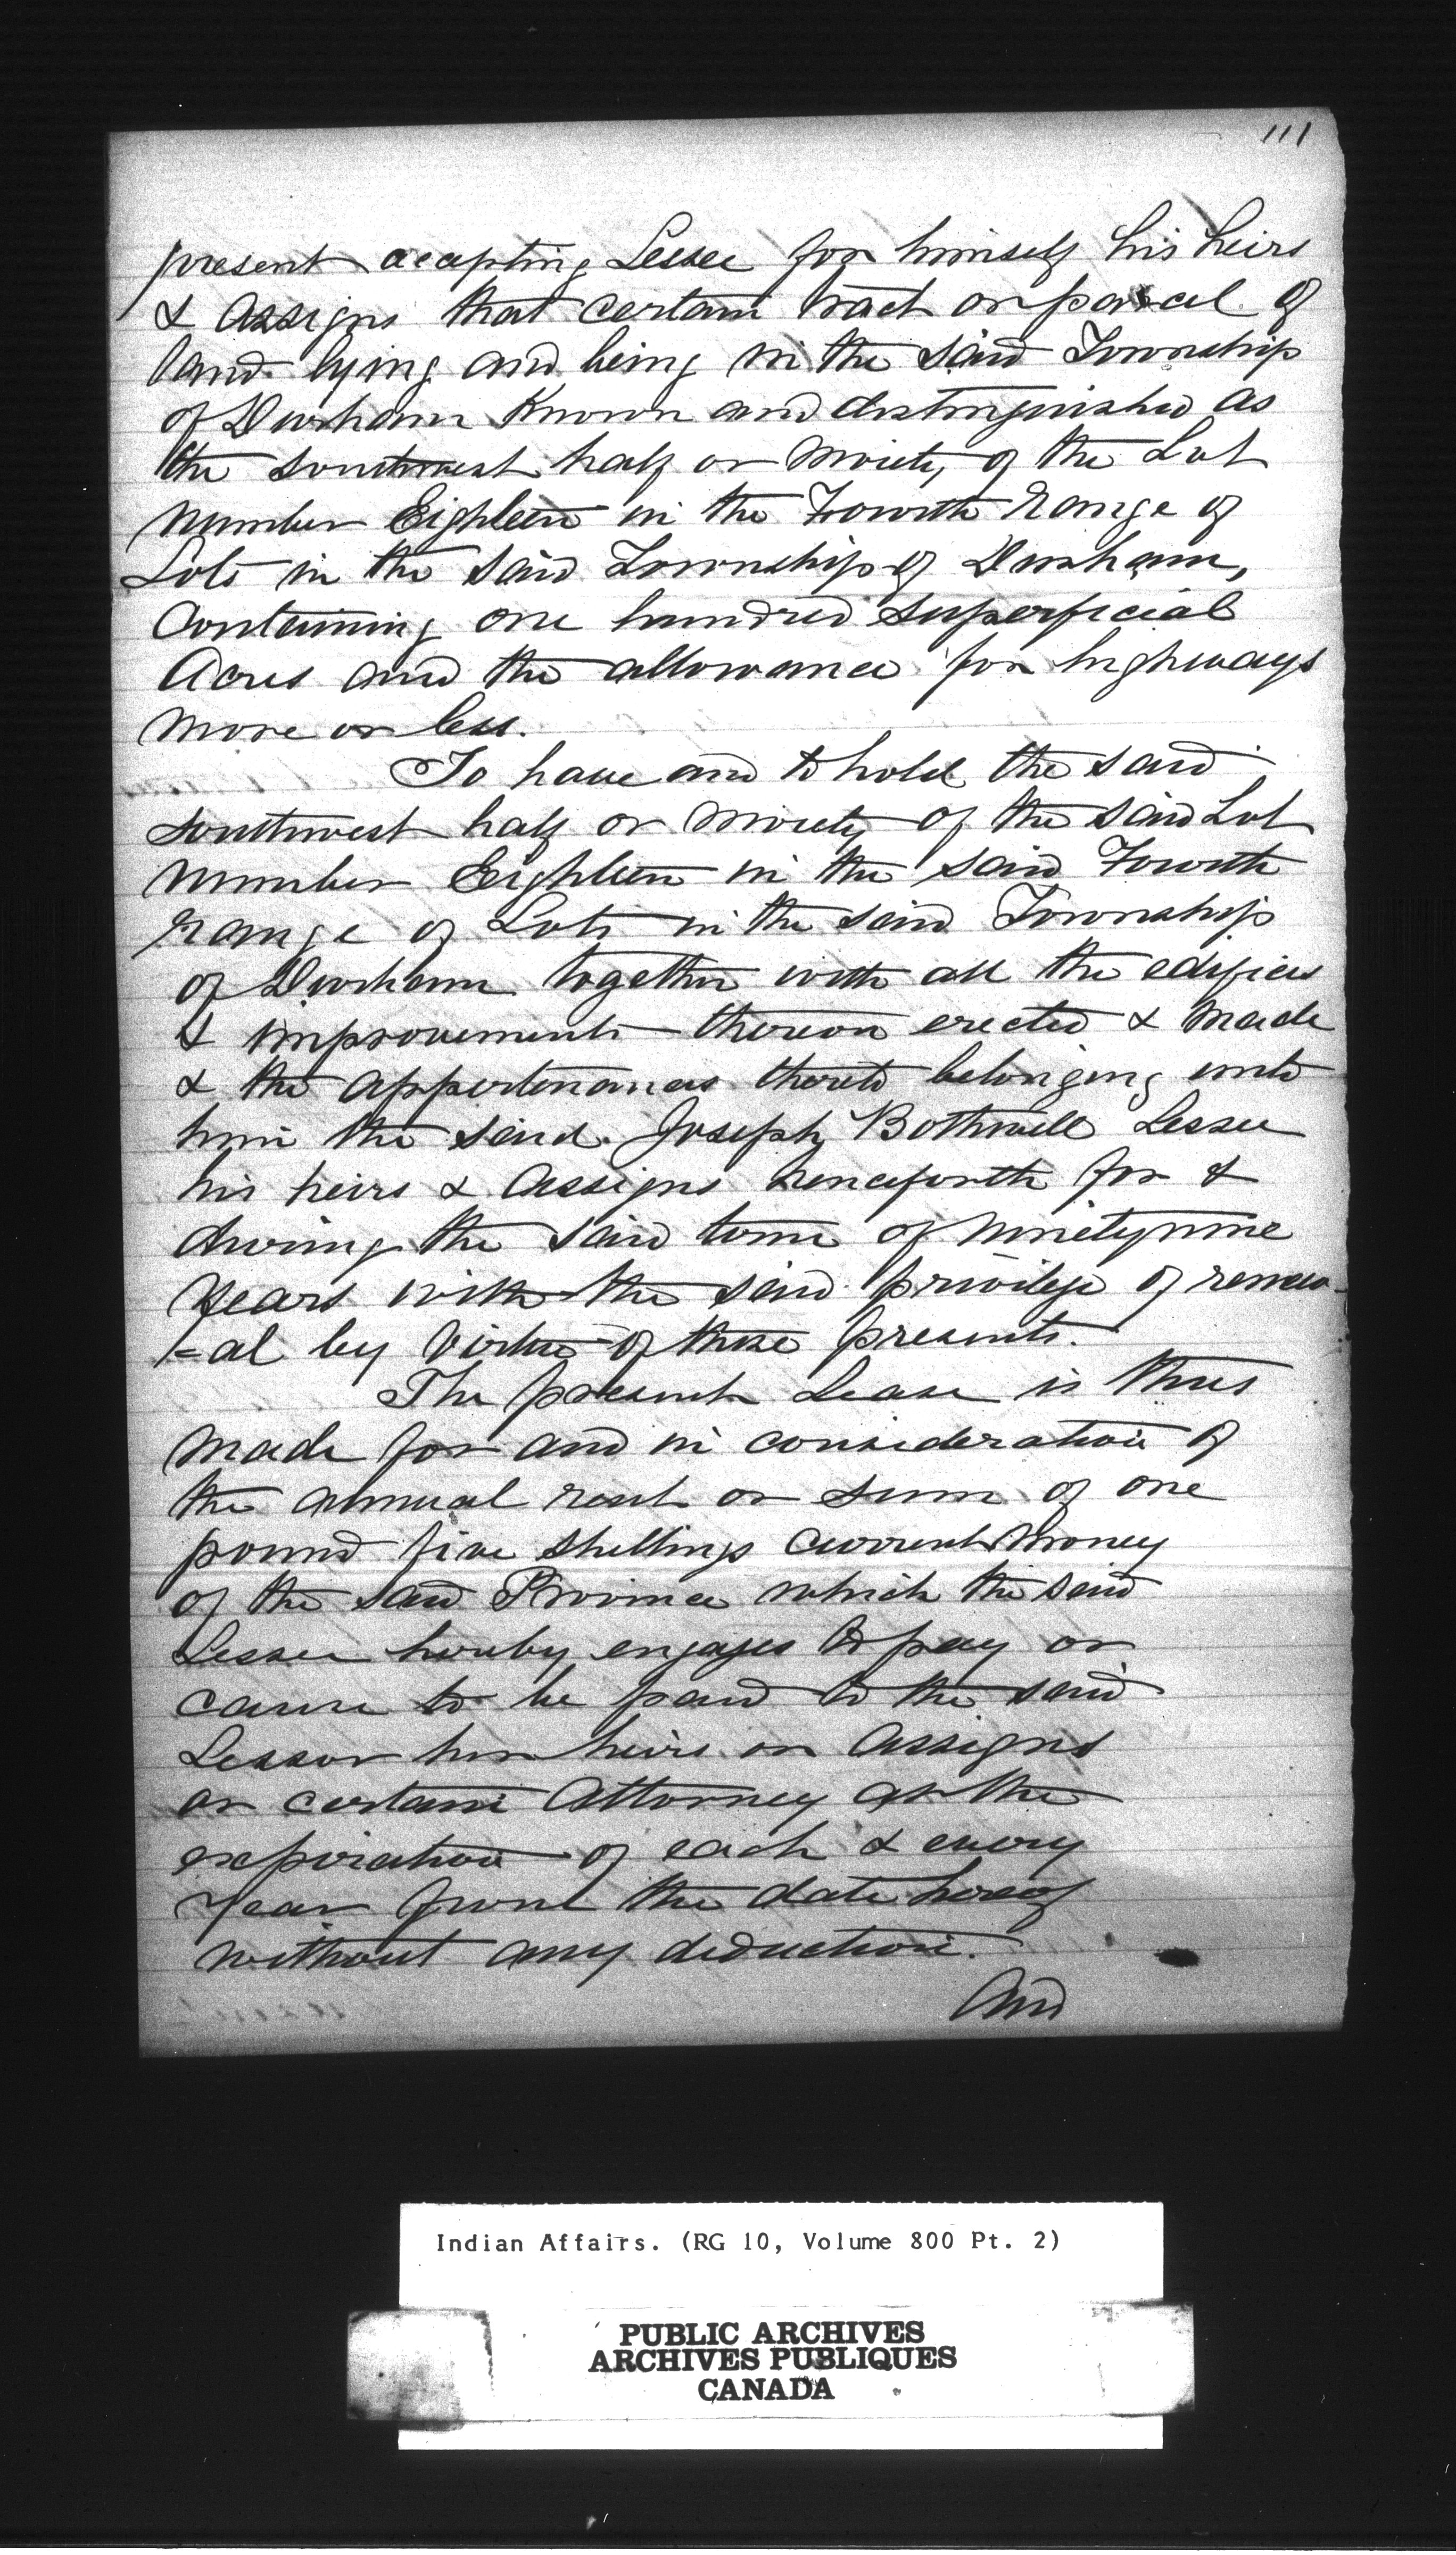 111
present accepting Lessee for himself his heirs
& Assigns that certain tract or parcel of
land lying and being in the said Township
of Durham Known and distinguished as
the southwest half or Moiety of the Lot
Number Eighteen in the Fourth Range of
Lots in the said Township of Durham,
Containing one hundred superficial
Acres and the allowance for highways
more or less.
To have and to hold the said
southwest half or Moiety of the said Lot
Number Eighteen in the said Fourth
range of Lots in the said Township
of Durham together with all the edifices
& improvements thereon erected & made
& the appertenances thereto belonging unto
him the said Joseph Bothwell Lessee
his heirs & Assigns henceforth for &
during the said term of Ninetynine
years with the said privilege of renew-
=al by Virtue of these presents.
The present Lease is thus
made for and in consideration of
the annual rent or sum of one
pound five shillings Current Money
of the said Province which the said
Lessee hereby engages to pay or
cause to be paid to the said
Lessor her heirs or Assigns
or certain Attorney at the
expiration of each & every
year from the date hereof
without any deduction.
And
Indian Affairs. (RG 10, Volume 800 Pt. 2)
PUBLIC ARCHIVES
ARCHIVES PUBLIQUES
CANADA